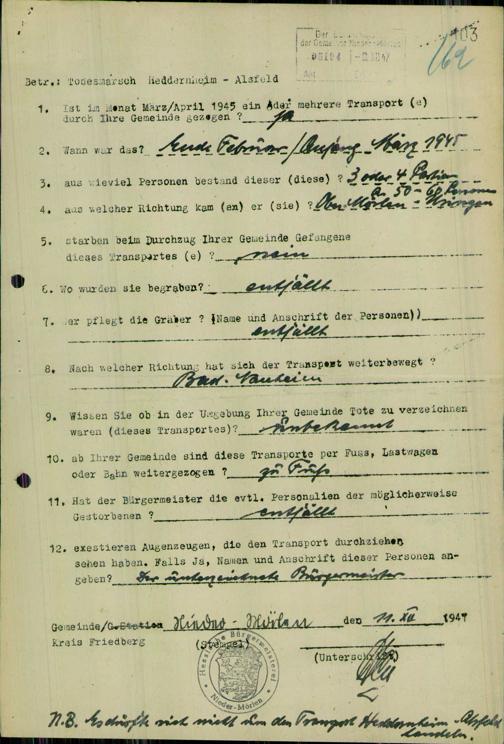 103
Der Bürgermeister
der Gemeinde Nieder-Mörlen
169
Betr.: Todesmarsch Heddernheim - Alsfeld
1. Ist im Monat März/April 1945 ein oder mehrere Transport (e)
durch Ihre Gemeinde gezogen ? ja
2. Wann war das? Ende Februar/Anfang März 1945
3. aus wieviel Personen bestand dieser (diese) ? 3 oder 4 Partien
a. 50 - 60 Personen
4. aus welcher Richtung kam (en) er (sie) ? Ober Mörlen - Usingen
5. starben beim Durchzug Ihrer Gemeinde Gefangene
dieses Transportes (e) ? nein
6. Wo wurden sie begraben? entfällt
7. Wer pflegt die Gräber ? (Name und Anschrift der Personen))
entfällt
8. Nach welcher Richtung hat sich der Transport weiterbewegt ?
Bad-Nauheim
9. Wissen Sie ob in der Umgebung Ihrer Gemeinde Tote zu verzeichnen
waren (dieses Transportes)? unbekannt
10. ab Ihrer Gemeinde sind diese Transporte per Fuss, Lastwagen
oder Bahn weitergezogen ? zu Fuß
11. Hat der Bürgermeister die evtl. Personalien der möglicherweise
Gestorbenen ? entfällt
12. exestieren Augenzeugen, die den Transport durchziehen
sehen haben. Falls Ja, Namen und Anschrift dieser Personen an-
geben? Der unterzeichnete Bürgermeister
Gemeinde/G.Station Nieder-Mörlen den 11. XII 1947
Kreis Friedberg (Stempel) (Unterschrift)
Hessische Bürgermeisterei
Nieder-Mörlen
N.B. Es dürfte sich nicht um den Transport Heddernheim - Alsfeld
handeln.